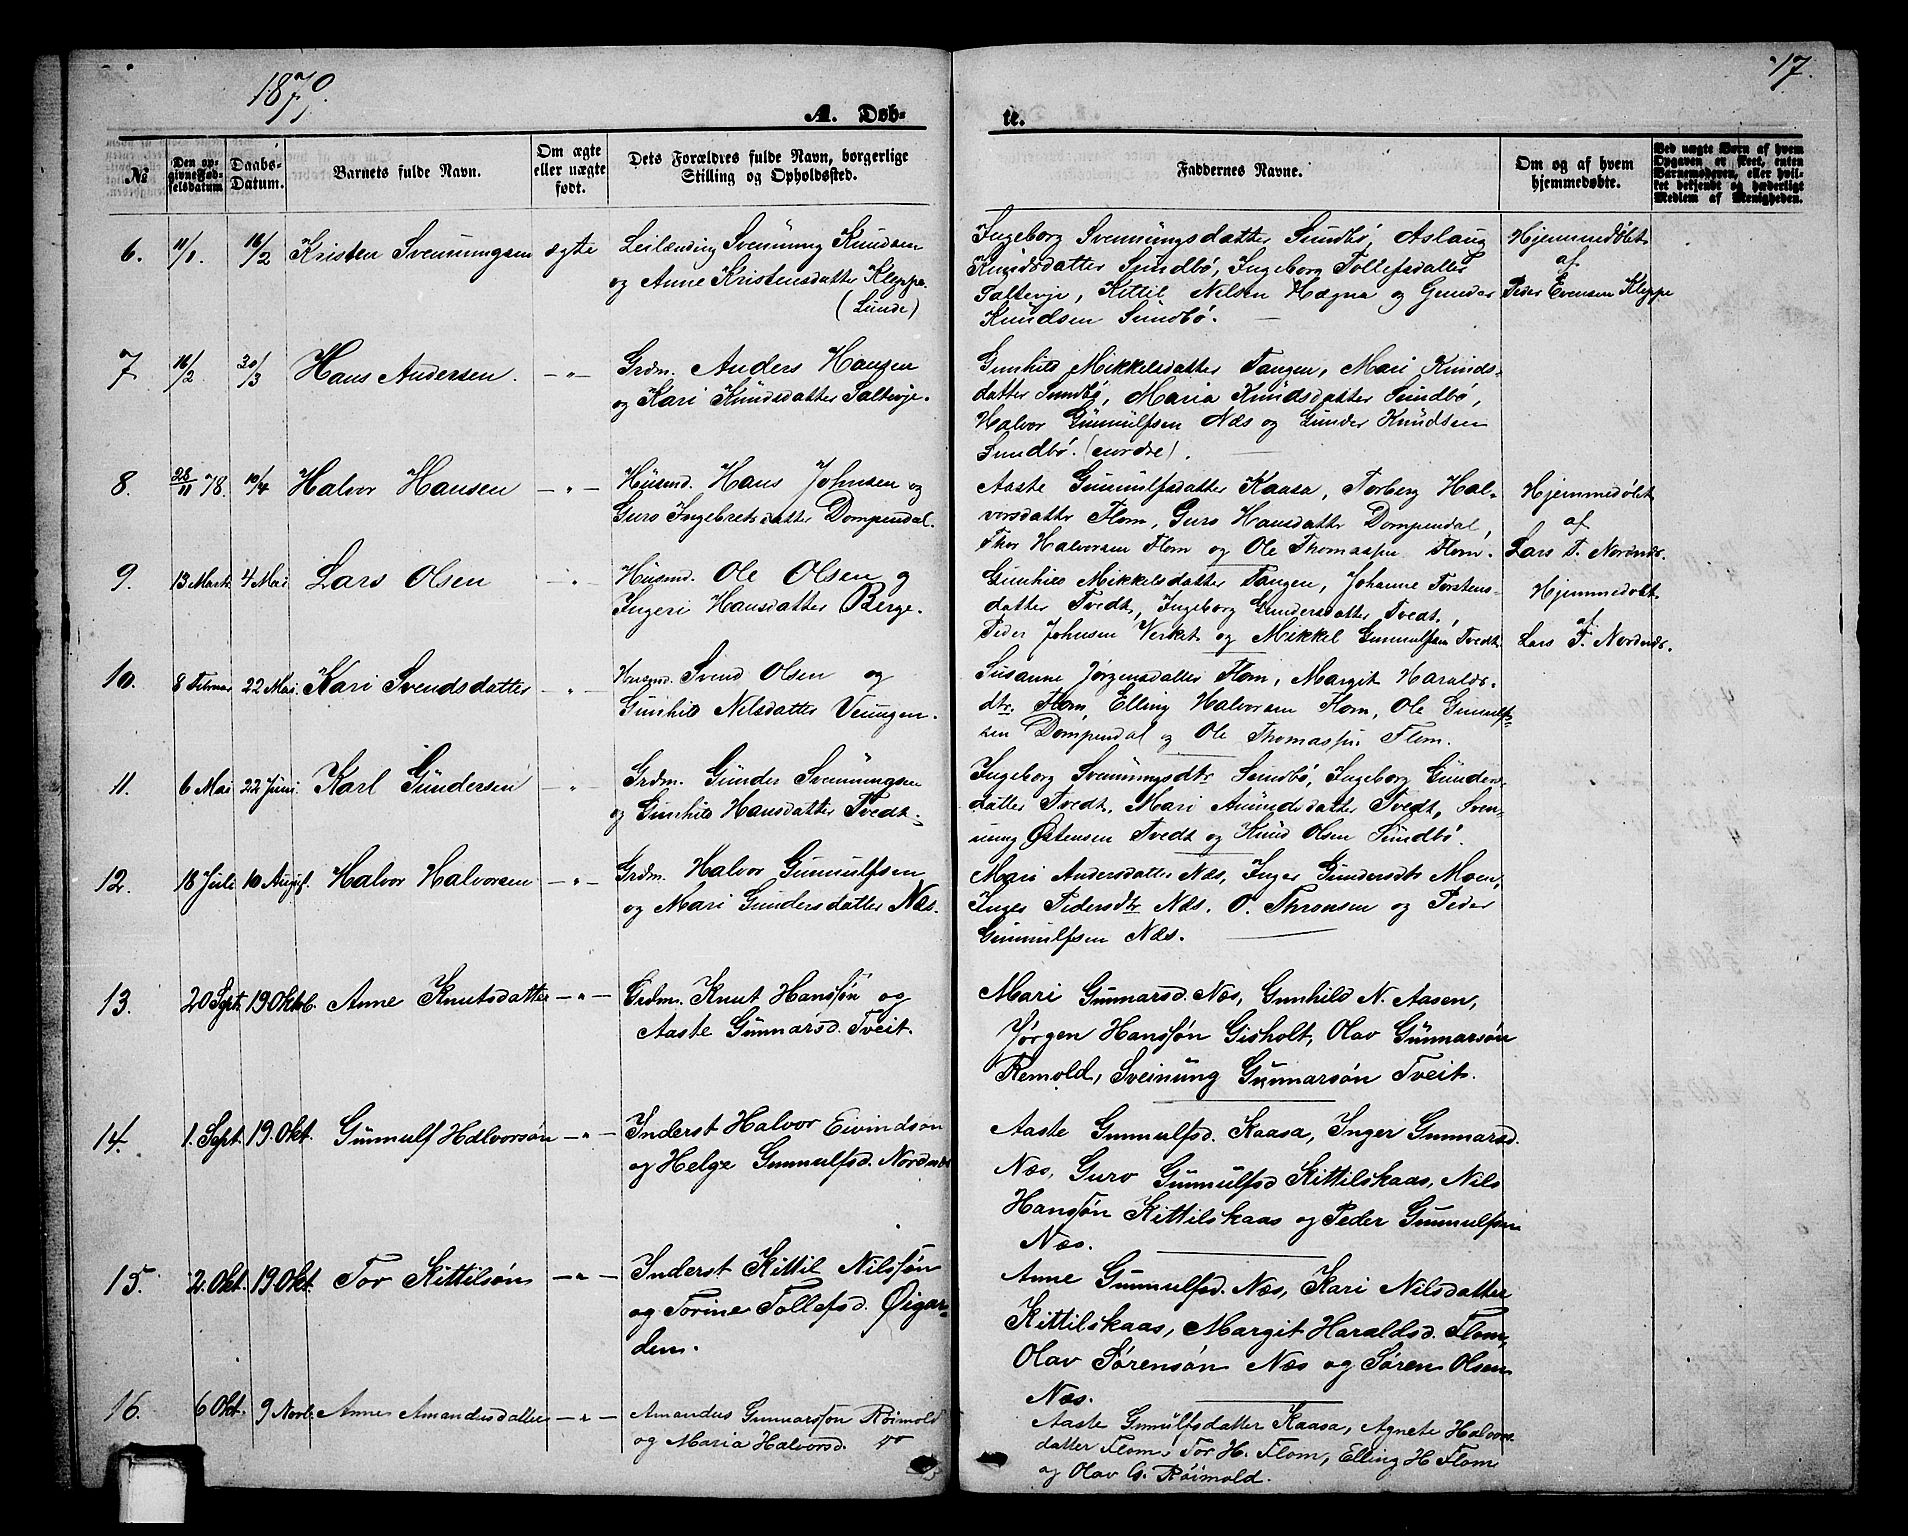 1879.
17.
A. Døb-
te.
No
Den op-
givne Fød-
selsdatum
Daabs-
Datum.
Barnets fulde Navn.
Om ægte
eller uægte
født.
Dets Forældres fulde Navn, borgerlige
Stilling og Opholdssted.
Faddernes Navne.
Om og af hvem
hjemmedøbte.
Ved uægte Børn af hvem
Opgaven er skeet, enten
Barnemoderen, eller hvil-
ket bekjendt og hæderligt
Medlem af Menigheden.
6. 11/1. 16/2 Kristen Svennungsen ægte
Leilænding Svennung Knudsen
og Anne Kristensdatter Kleppe.
(Lunde)
Ingeborg Svennungsdatter Sundbø, Aslaug
Knudsdatter Sundbø, Ingeborg Tollefsdatter
Saltevje, Kittil Nilsen Hægna og Gunder
Knudsen Sundbø.
Hjemmedøbt
af
Peder Evensen Kleppe
7 16/2. 30/3 Hans Andersen. — „ —
Grdm. Anders Hansen
og Kari Knudsdatter Saltevje.
Gunhild Mikkelsdatter Tangen, Mari Knuds-
datter Sundbø, Maria Knudsdatter Sundbø,
Halvor Gunnulfsen Næs og Gunder Knudsen
Sundbø. (nordre).
8. 28/11 78. 10/4 Halvor Hansen — „ —
Husmd. Hans Johnsen og
Guro Ingebretsdatter Dompendal.
Aaste Gunnulfsdatter Kaasa, Torberg Hal-
vorsdatter Flom, Guro Hansdatter Dompendal,
Thor Halvorsen Flom og Ole Thomassen Flom.
Hjemmedøbt
af
Lars T. Nordnæs.
9. 13 Marts 4 Mai Lars Olsen „
Husmd. Ole Olsen og
Ingeri Hansdatter Berge.
Gunhild Mikkelsdatter Tangen, Johanne Torstens-
datter Tvedt, Ingeborg Gundersdatter Tvedt,
Peder Johnsen Verket og Mikkel Gunnulfsen Tvedt.
Hjemmedøbt
af
Lars T. Nordnæs.
10. 8 Februar 22 Mai. Kari Svendsdatter — „
Husmd. Svend Olsen og
Gunhild Nilsdatter Veungen.
Susanne Jørgensdatter Flom, Margit Haralds-
dtr. Flom, Elling Halvorsen Flom, Ole Gunnulf-
sen Dompendal og Ole Thomassen Flom.
11. 6 Mai 22 Juni. Karl Gundersen — „
Grdm. Gunder Svennungsen
og Gunhild Hansdatter Tvedt.
Ingeborg Svennungsdtr Sundbø, Ingeborg Gunders-
datter Tvedt, Mari Amundsdatter Tvedt, Sven-
nung Østensen Tvedt og Knud Olsen Sundbø.
12. 18 Juli 10 August. Halvor Halvorsen — „ —
Grdm. Halvor Gunnulfsen
og Mari Gundersdatter Næs.
Mari Andersdatter Næs, Inger Gundersdtr Moen,
Inger Pedersdtr Næs. O. Thronsen og Peder
Gunnulfsen Næs.
13. 20 Sept. 19 Oktob. Anne Knutsdatter — „ —
Grdm. Knut Hanssøn og
Aaste Gunnarsd. Tveit.
Mari Gunnarsd. Næs, Gunhild N. Aasen,
Jørgen Hanssøn Gisholt, Olav Gunnarsøn
Remold, Sveinung Gunnarsøn Tveit.
14. 1. Sept. 19. Okt. Gunnulf Halvorsøn — „ —
Inderst Halvor Eivindsøn
og Helge Gunnulfsd. Nordnæs
Aaste Gunnulfsd. Kaasa, Inger Gunnarsd.
Næs, Guro Gunnulfsd Kittilskaas, Nils
Hanssøn Kittilskaas og Peder Gunnulfsen
Næs.
15. 2. Okt. 19 Okt. Tor Kittilsøn — „ —
Inderst Kittil Nilssøn
og Torine Tollefsd. Øigar-
den.
Anne Gunnulfsd. Næs, Kari Nilsdatter
Kittilskaas, Margit Haraldsd. Flom,
Olav Sørensøn Næs og Søren Olsen
Næs.
16. 6 Okt. 9 Novb. Anne Amandusdatter — „ —
Amandus Gunnarssøn Røimold
og Maria Halvorsd.
Aaste Gunnulfsdatter Kaasa, Agnete Halvors-
datter Flom, Tor H. Flom, Elling H Flom
og Olav G. Røimold.